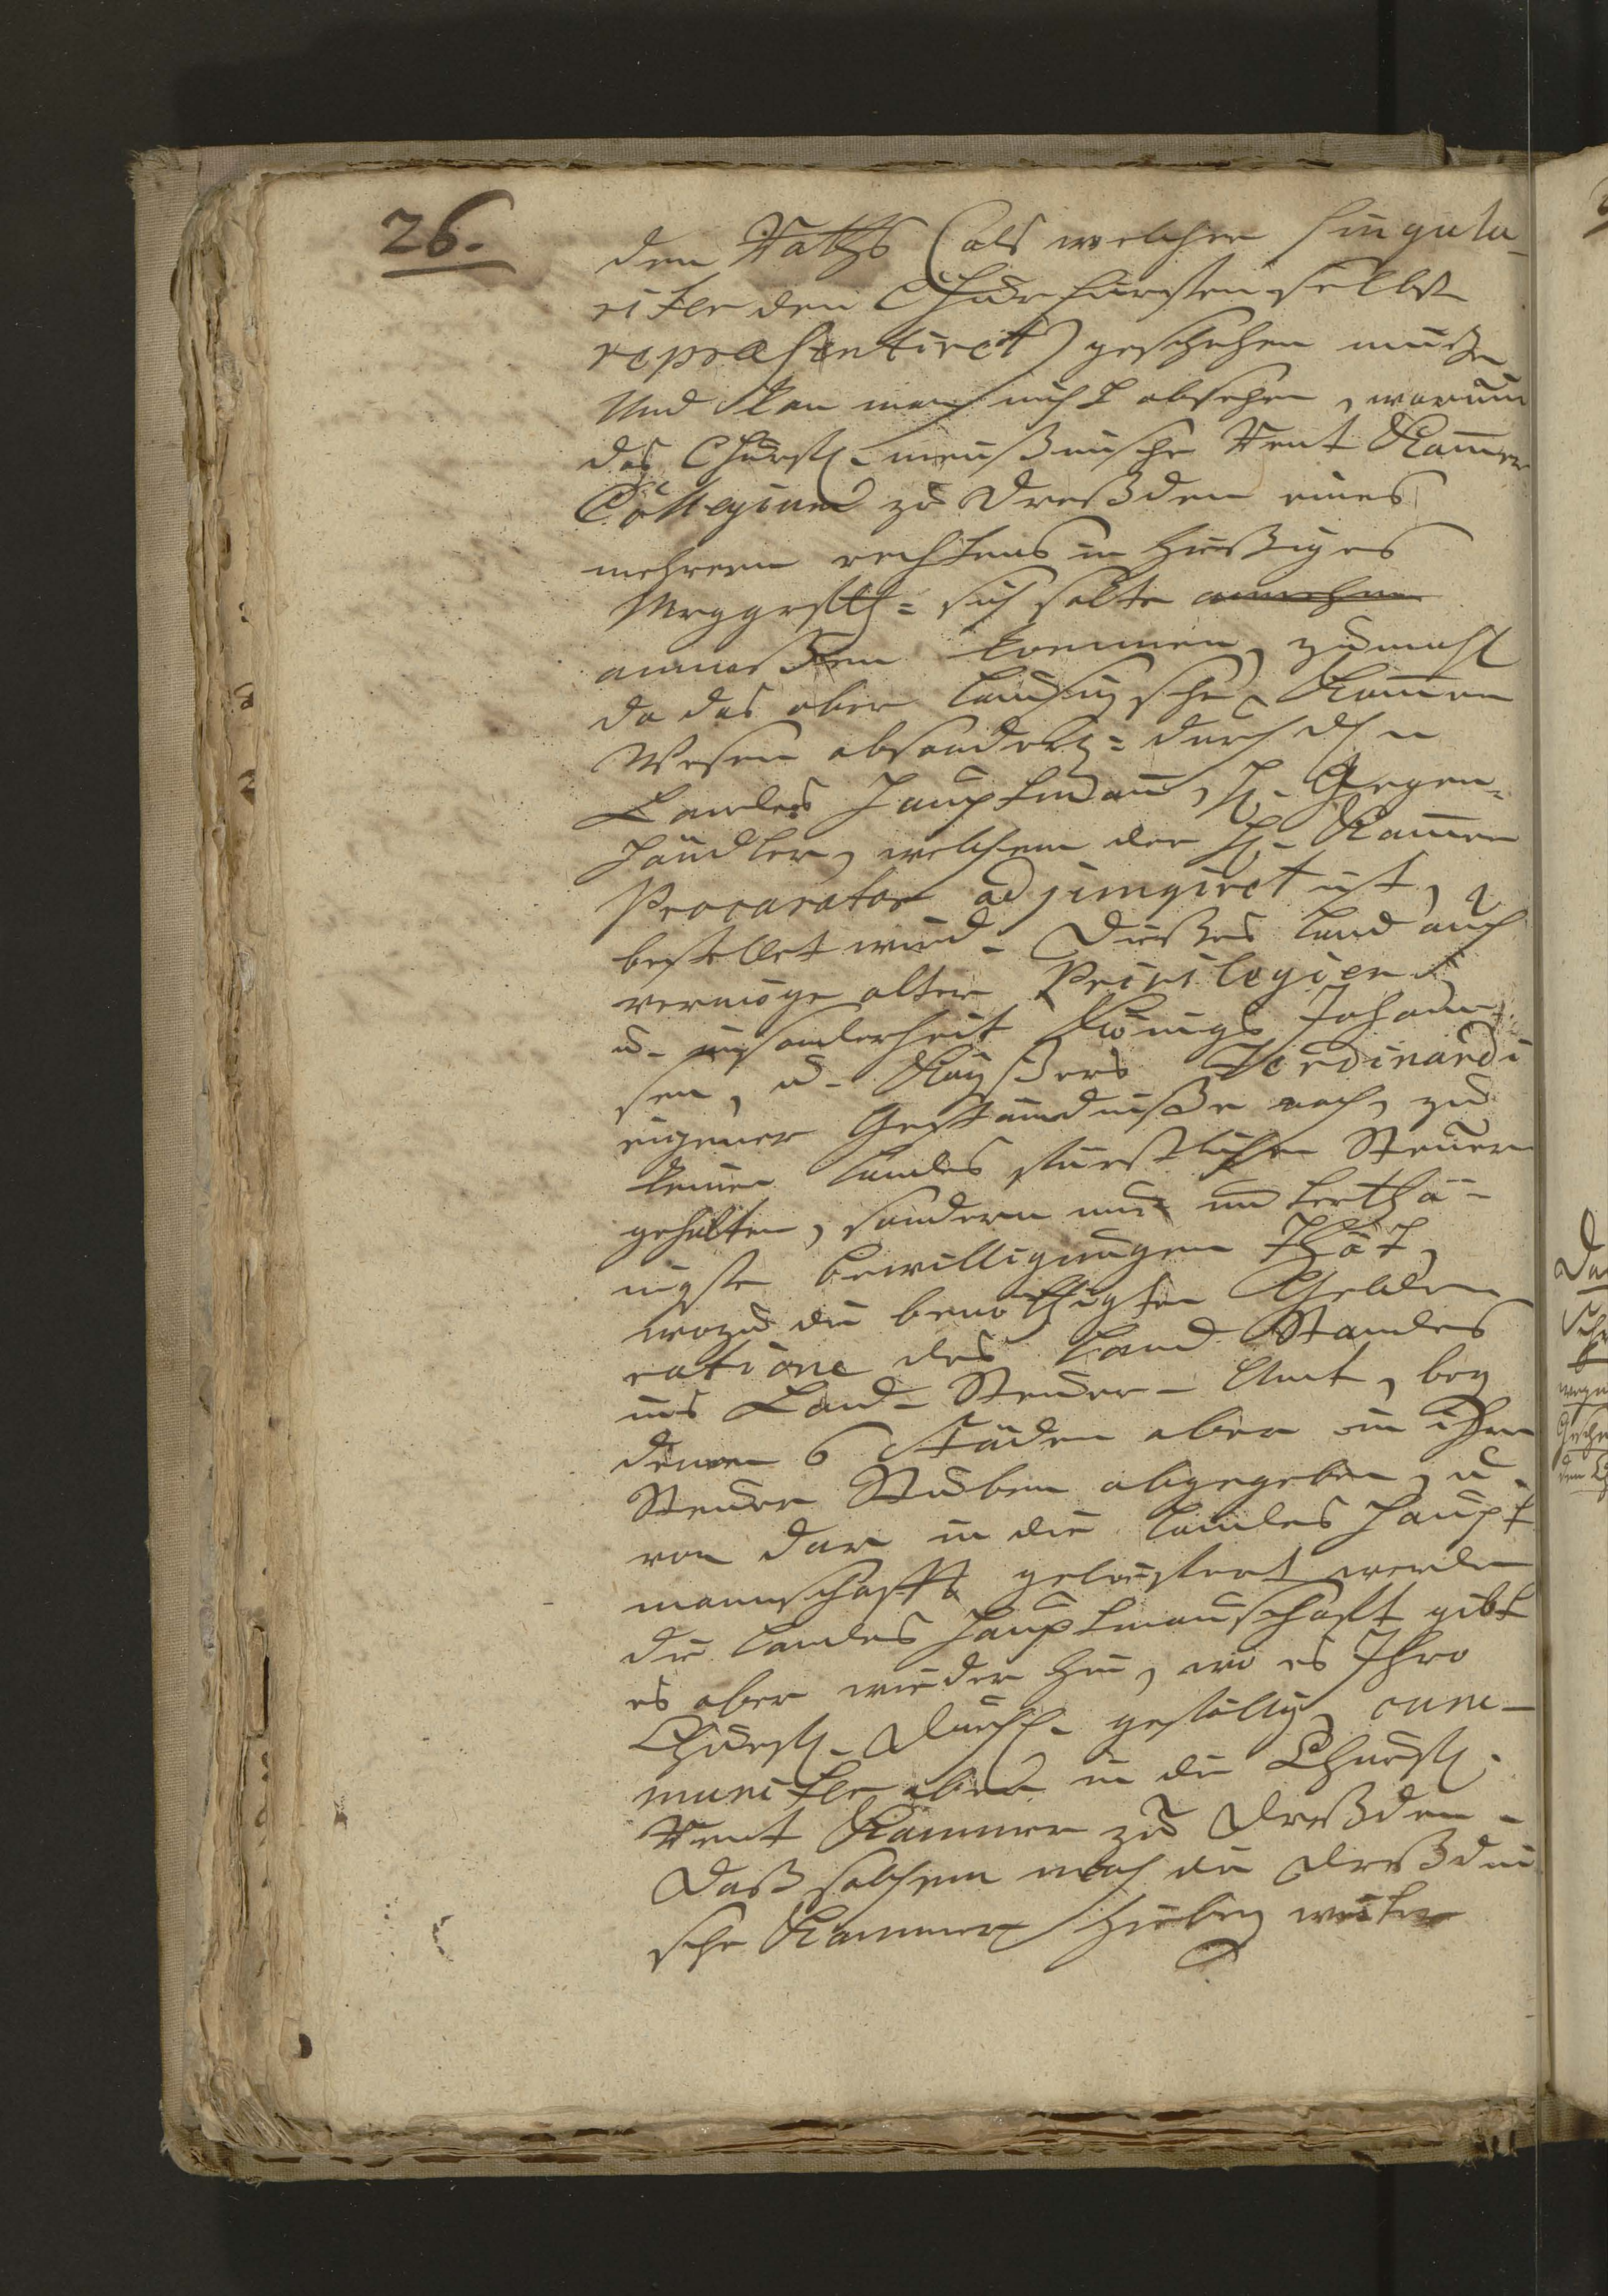 26.
den Raths (als welcher singula-
riter den Churfürsten selbst
repraesentiret) geschehen müße
Und kan man nicht absehen, warum
das Churfl. meißnische Rent Kam̄er
Collegium zu Dreßden eines
mehrern rechtens in hießiges
Mrggrffth= sich solte annehmen
anmaßen koennen, zumahl
da das ober Laußizsche Kam̄er
Wesen absonderl.= durch den
Landes Hauptman̄, H. Gegen-
händler, welchem der H. Kam̄er
Procurator adjungiret ist,
bestellet wird. Dießes Land auch
vermöge alter Privilegien
u. insonderheit Königs Johan̄-
sen, u. Kayßers Ferdinandi
eigener Geständniße nach, zu
keinen Landes fürstlichen Steuern
gehalten, sondern nur unterthä-
nigste bewilligungen thät,
wozu die benöthigten Gelder
ratione des Land Standes
ins Land-Steuer-Amt, bey
denen 6 Städen aber in ihre
Steuer Stuben abgegeben, u.
von dar in die Landes Haupt
mannschafft geliefert werden
die Landes Hauptman̄schafft gibt
es aber wieder hin, wo es Ihro
Churfl. Durchl. gefällig, com-
muniter aber in die Churfl.
Rent Kammer zu Dreßden.
Daß solchem nach die Dreßdni
sche Kammer hiebey weiter